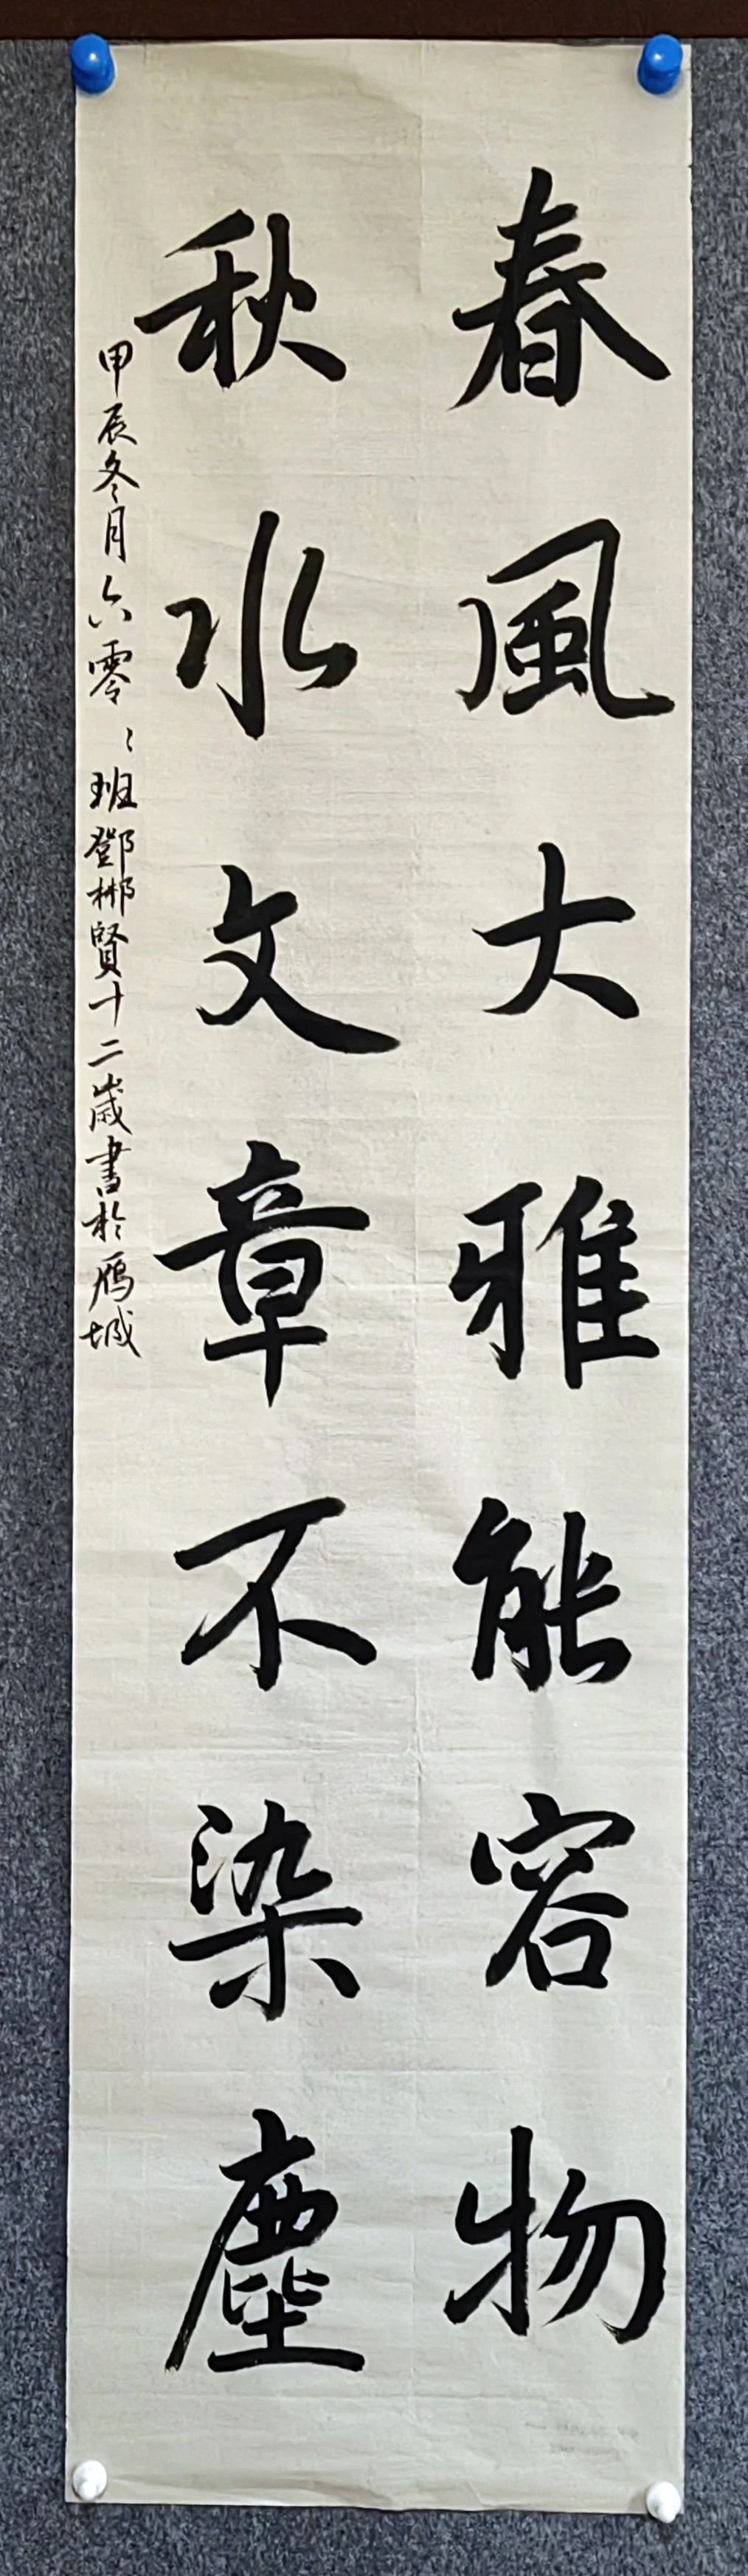 春風大雅能容物
秋水文章不染塵
甲辰冬月六零〻班鄧彬賢十二歲書於雁城